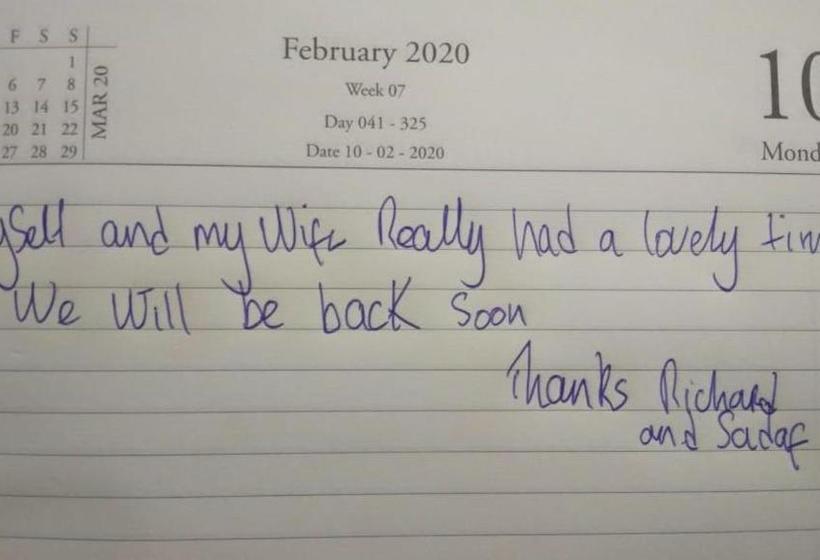 F S S
1
6 7 8
13 14 15
20 21 22
27 28 29
MAR 20
February 2020
Week 07
Day 041 - 325
Date 10 - 02 - 2020
10
Mond
ySelf and my Wife Really had a lovely tim
We Will be back Soon
Thanks Richard
and Sadaf